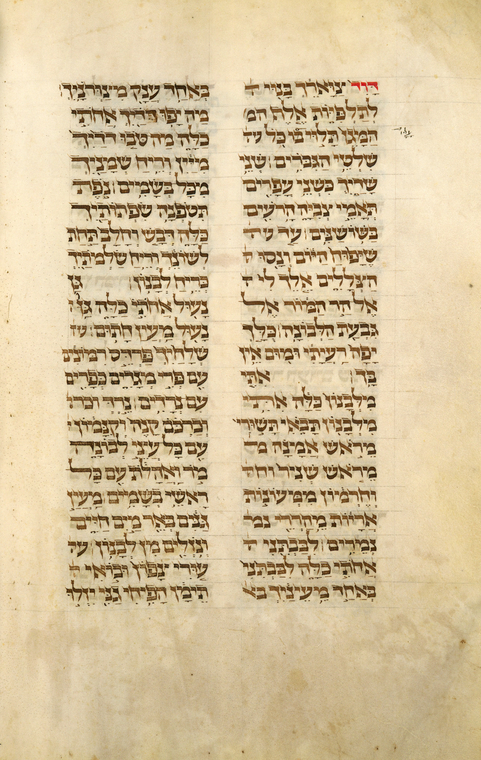 דוד צוארך בנוי
לתלפיות אלף המ
המגן תלוי כל
עליו
שלטי הגברים שני
שדיך כשני עפרים
תאמי צביה הרעים
בשושנים עד
שיפוח היום ונסו ה
הצללים אלך לי
אל הר המור אל
גבעת הלבונה כלך
יפה רעיתי ומום אין
בך אתי
מלבנון כלה אתי
מלבנון תבואי תשורי
מראש אמנה מר
מראש שניר וחר
וחרמון ממעונות
אריות מהררי נמר
נמרים לבבתני
אחתי כלה לבבתני
באחד מעיניך בא
באחד ענק מצורניך
מה יפו דדיך אחותי
כלה מה טבו דדיך
מיין וריח שמניך
מכל בשמים נפת
תטפנה שפתותיך
כלה דבש וחלב תחת
לשונך וריח שלמותיך
כריח לבנון גן
נעול אחותי כלה גל
נעול מעין חתום
שלחיך פרדס רמונים
עם פרי מגדים כפרים
עם נרדים נרד וכר
וכרכם קנה וקנמון
עם כל עצי לבונה
מר ואהלות עם כל
ראשי בשמים מעין
גנים באר מים חיים
ונזלים מן לבנון
עורי צפון ובואי
תימן הפיחי גני יזלו